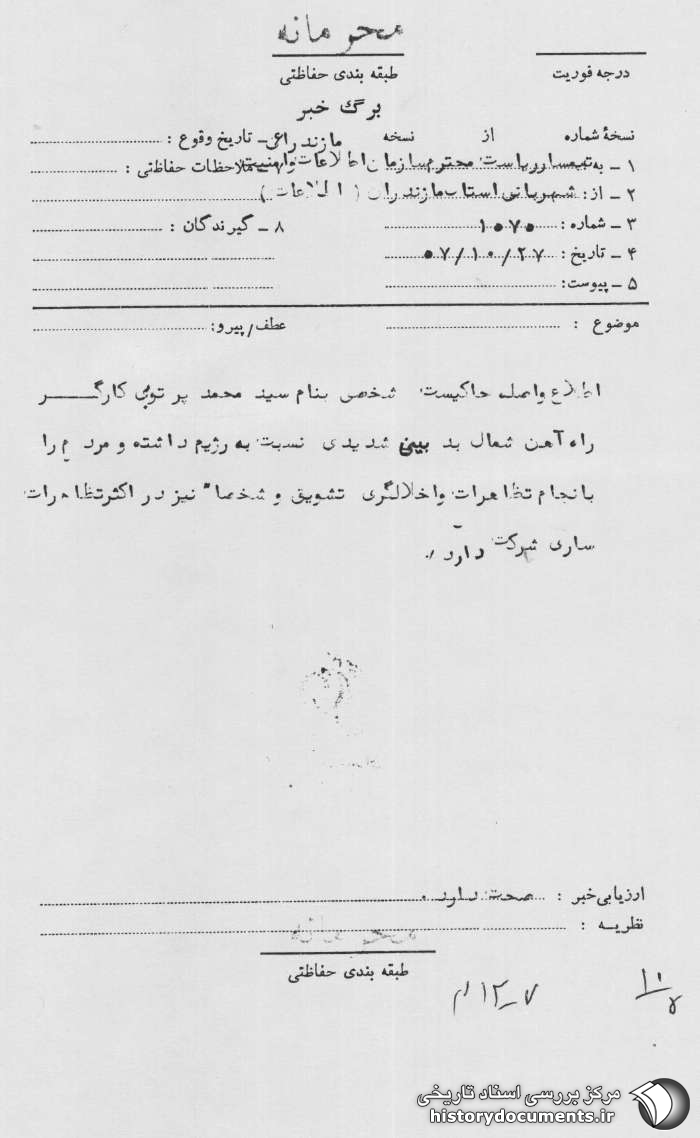 محرمانه
طبقه بندی حفاظتی
درجه فوریت
برگ خبر
نسخهٔ شماره از نسخه
۱ ـ به تیمسار ریاست محترم سازمان اطلاعات وامنیت مازندران
۲ ـ از: شهربانی استان مازندران ( اطلاعات )
۳ ـ شماره: ۱۰۷۰
۴ ـ تاریخ: ۵۷/۱۰/۲۷
۵ ـ پیوست:
ـ تاریخ وقوع :
۷ ـ ملاحظات حفاظتی :
۸ ـ گیرندگان :
موضوع :
عطف/پیرو:
اطلاع واصله حاکیست شخصی بنام سید محمد پرتوی کارگر
راه آهن شمال بد بینی شدیدی نسبت به رژیم داشته و مردم را
بانجام تظاهرات واخلالگری تشویق و شخصاً نیز در اکثرتظاهرات
ساری شرکت دارد
ارزیابی خبر : صحت دارد .
نظریه :
محرمانه
طبقه بندی حفاظتی
مرکز بررسی اسناد تاریخی
historydocuments.ir